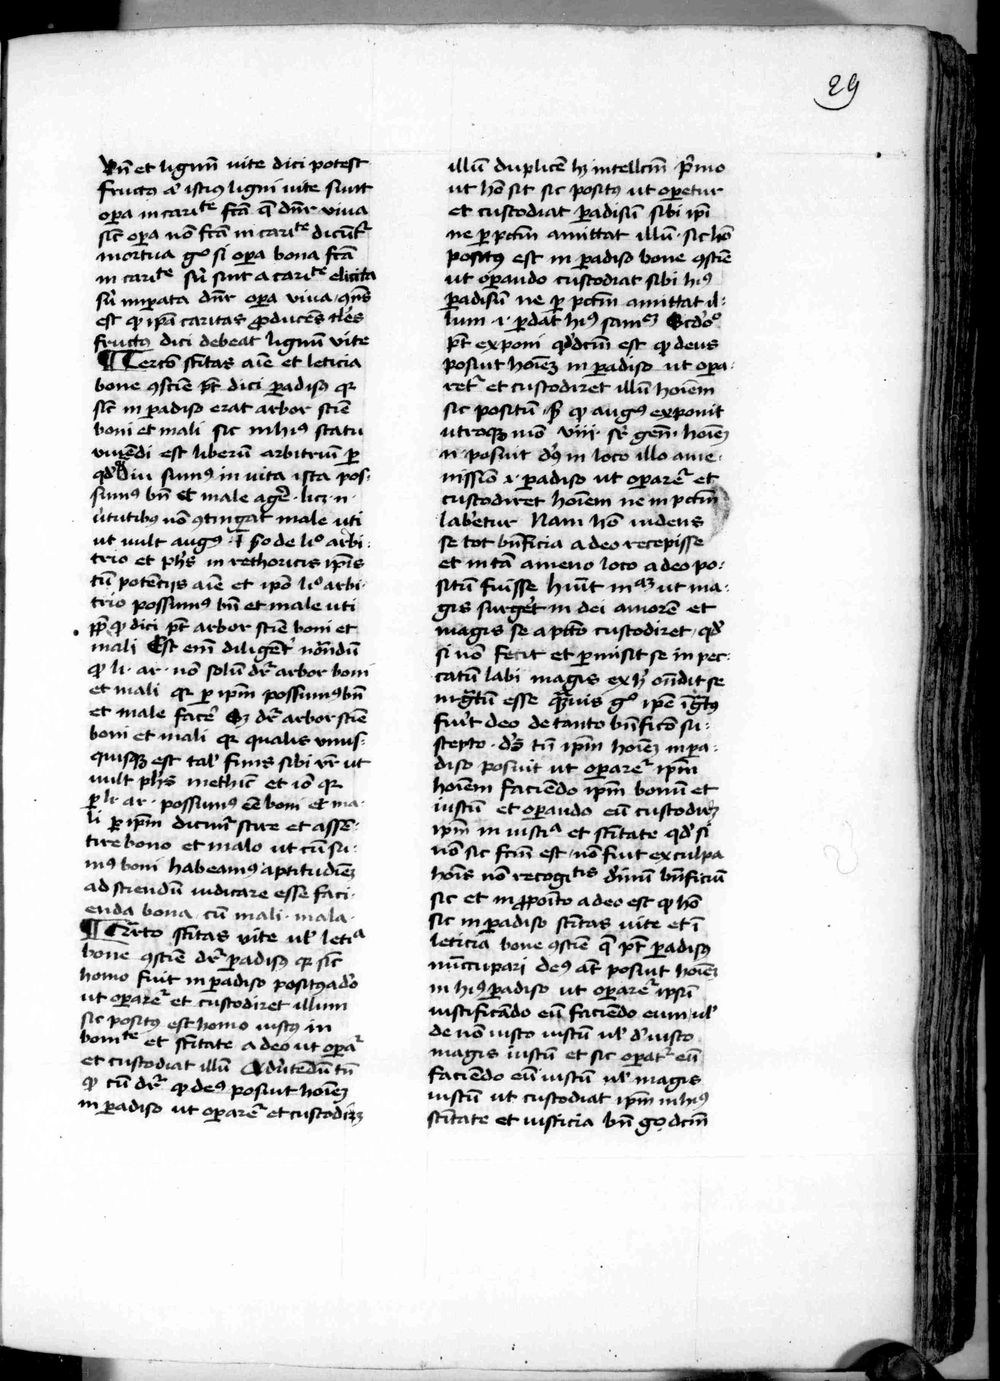 29
vn̄ et lignū vite dici potest
fructꝰ aūt istiꝰ ligni vite sunt
opa in caritᵗᵉ fcā q̄ dn̄r viva
sic̄ opa nō fcā in caritᵗᵉ dicūt̄
mortua gᵒ si opa bona fcā
in caritᵗᵉ sū sint a caritᵗᵉ elicita
sū imꝑata dn̄r opa viva
est qꝫ ip̄a caritas ꝓducēs
fructꝰ dici debeat lignū vite
¶ Tercō sc̄itas aīe et leticia
bone ꝯscīe pt̄ dici ꝑadisꝰ qr
sic̄ in ꝑadiso erat arbor scīe
boni et mali sic in hiꝰ statu
vivēdi est liberū arbitriū ꝑ
qd̄ diu sumꝰ in vita ista pos-
sumꝰ bn̄ et male agē licꝫ n
v̄tutibꝰ nō ꝯtingat male uti
ut vult augꝰ de liᵒ arbi-
trio et phs̄ in rethoricis ip̄is
tn̄ potēcijs aīe et ip̄o liᵒ arbi-
trio possumꝰ bn̄ et male uti
ꝓp̄ qd̄ dici pt̄ arbor scīe boni et
mali Est em̄ diligent̄ notādū
qꝫ li ar nō solū dr̄ arbor boni
et mali qr ꝑ ip̄m possumꝰ bn̄
et male facē sꝫ dr̄ arbor scīe
boni et mali qr qualis unus-
quisqꝫ est tal̄ finis sibi vr̄ ut
vult phs̄ in ethic̄ et iō qr
ꝑ li ar possumꝰ eē boni et ma-
li ꝑ ip̄m dicim̄ scire et assē-
tire bono et malo ut cū su-
mꝰ boni habeamꝰ aptitudinē
ad sciendū iudicare esse faci-
enda bona cū mali mala
¶ Q̄rto sc̄itas vite ul̄ letiᵃ
bone ꝯscīe dr̄ ꝑadisꝰ qr sic̄
homo fuit in ꝑadiso positꝰ a dō
ut oparet̄ et custodiret illum
sic positꝰ est homo iustꝰ in
bonitᵗᵉ et sc̄itate a deo ut opet̄
et custodiat illū Advtēdū tn̄
qꝫ cū dr̄ qꝫ deꝰ posuit hoīem
in ꝑadiso ut oparet̄ et custodiꝫ
illū duplicē hꝫ intellcm̄ p̄mo
ut hō sit sic positꝰ ut opetur
et custodiat ꝑadisū sibi ip̄i
ne ꝑ pctm̄ amittat illū sic hō
positꝰ est in ꝑadiso bone ꝯscīe
ut opando custodiat sibi hiꝰ
ꝑadisū ne ꝑ pctm̄ amittat il-
lum ꝑdat hiꝰ Scd̄o
pt̄ exponi qd̄ dcm̄ est qꝫ deus
posuit hoīem in ꝑadiso ut opa-
ret̄ et custodiret illū hoīem
sic positū qꝫ augꝰ exponit
utroqꝫ mō viii sr̄ gen̄ hoīeꝫ
n posuit dn̄s in loco illo ame-
nissio ꝑadiso ut oparet̄ et
custodiret hoīem ne in pctm̄
laberetur Nam hō videns
se tot bn̄ficia a deo recepisse
et in tā ameno loco a deo po-
situ fuisse hūit ut ma-
gis surget in dei amorē et
magis se a pctō custodiret qd̄
si nō fecit et ꝑmisit se in pec-
catum labi magis ex hͦ on̄dit se
ingtū esse q̄uis gᵒ ip̄e īgtꝰ
fuit deo de tanto bn̄ficō su-
scepto ds̄ tn̄ ip̄m hoīem in pa-
diso posuit ut oparet̄ ip̄m
hoīem faciendo ip̄m bonū et
iustū et opando eū custodiꝫ
ip̄m in iusticᵃ et sc̄itate qd̄ si
nō sic fcm̄ est nō fuit ex culpa
hoīs nō recogitis divinū bn̄ficiū
sic et in ꝓpoīto a deo est qꝫ hō
sic in ꝑadiso sc̄itas vite et ī
leticia bone ꝯscīe q̄ pt̄ ꝑadisꝰ
nūccupari deꝰ aūt posuit hoīeꝫ
in hiꝰ ꝑadiso ut oparet̄ ipsū
iustificādo eū faciendo eum ul̄
de nō iusto iustū ul̄ d' iusto
magis iustū et sic opat̄ eū
faciendo eū iustū ul̄ magis
iustū ut custodiat ip̄m in hiꝰ
sc̄itate et iusticia bn̄ gᵒ dcm̄